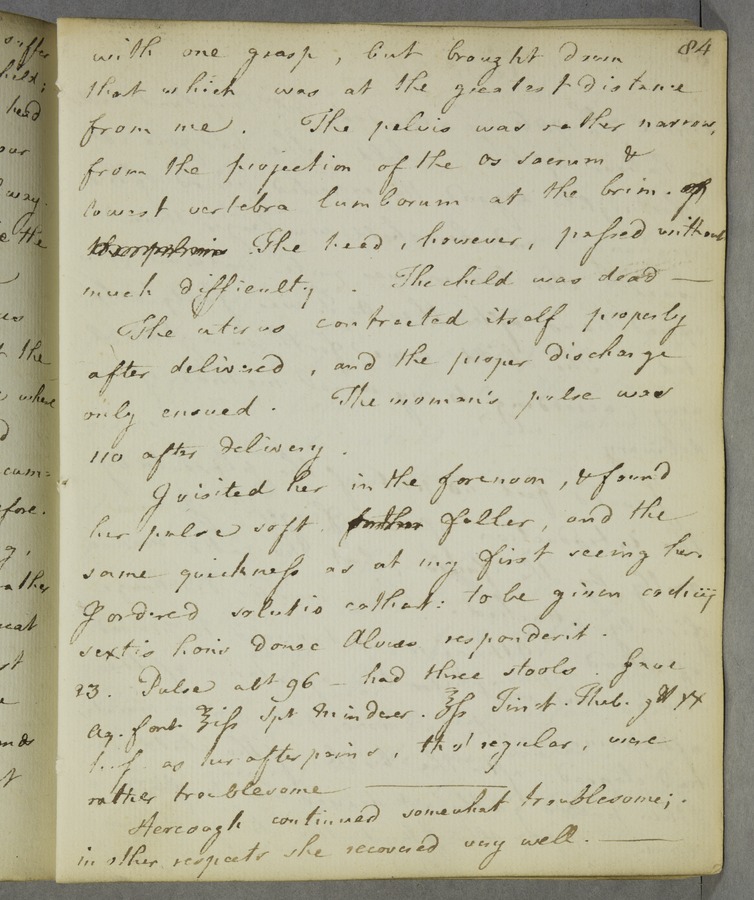 84
with one grasp, but brought down
that which was at the greatest distance
from me. The pelvis was rather narrow,
from the projection of the os sacrum &
lowest vertebra lumborum at the brim.
The head, however, passed without
much difficulty. The child was dead —
The uterus contracted itself properly
after delivered, and the proper discharge
only ensued. The woman's pulse was
110 after delivery.
I visited her in the forenoon, & found
her pulse soft fuller, and the
same quickness as at my first seeing her.
I ordered solutio cathart: to be given coch iij
sextis horis donec Alvus responderit.
23. Pulse abt 96 — had three stools. Gave
Aq. font. ℥iß Spt Minderer. ℥ß Tinct. Theb. gtt xx
h.s. as her afterpains, tho' regular, were
rather troublesome —
Her cough continued somewhat troublesome;
in other respects she recovered very well. —
suffer
child;
head
our
way.
the
the
where
cum=
fore.
rather